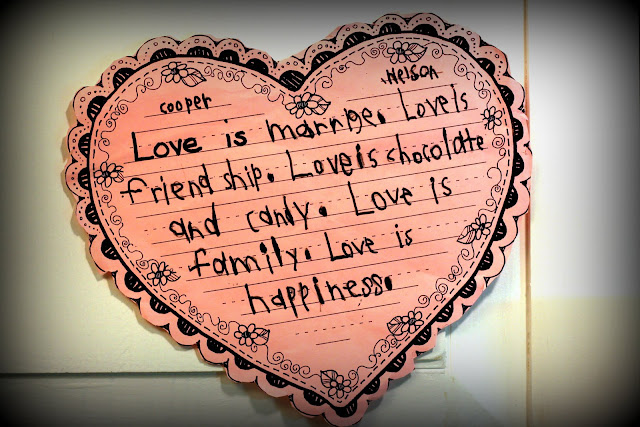 cooper Nelson
Love is marrige. Loveis
friend ship. Loveis chocolate
and candy. Love is
family. Love is
happiness.